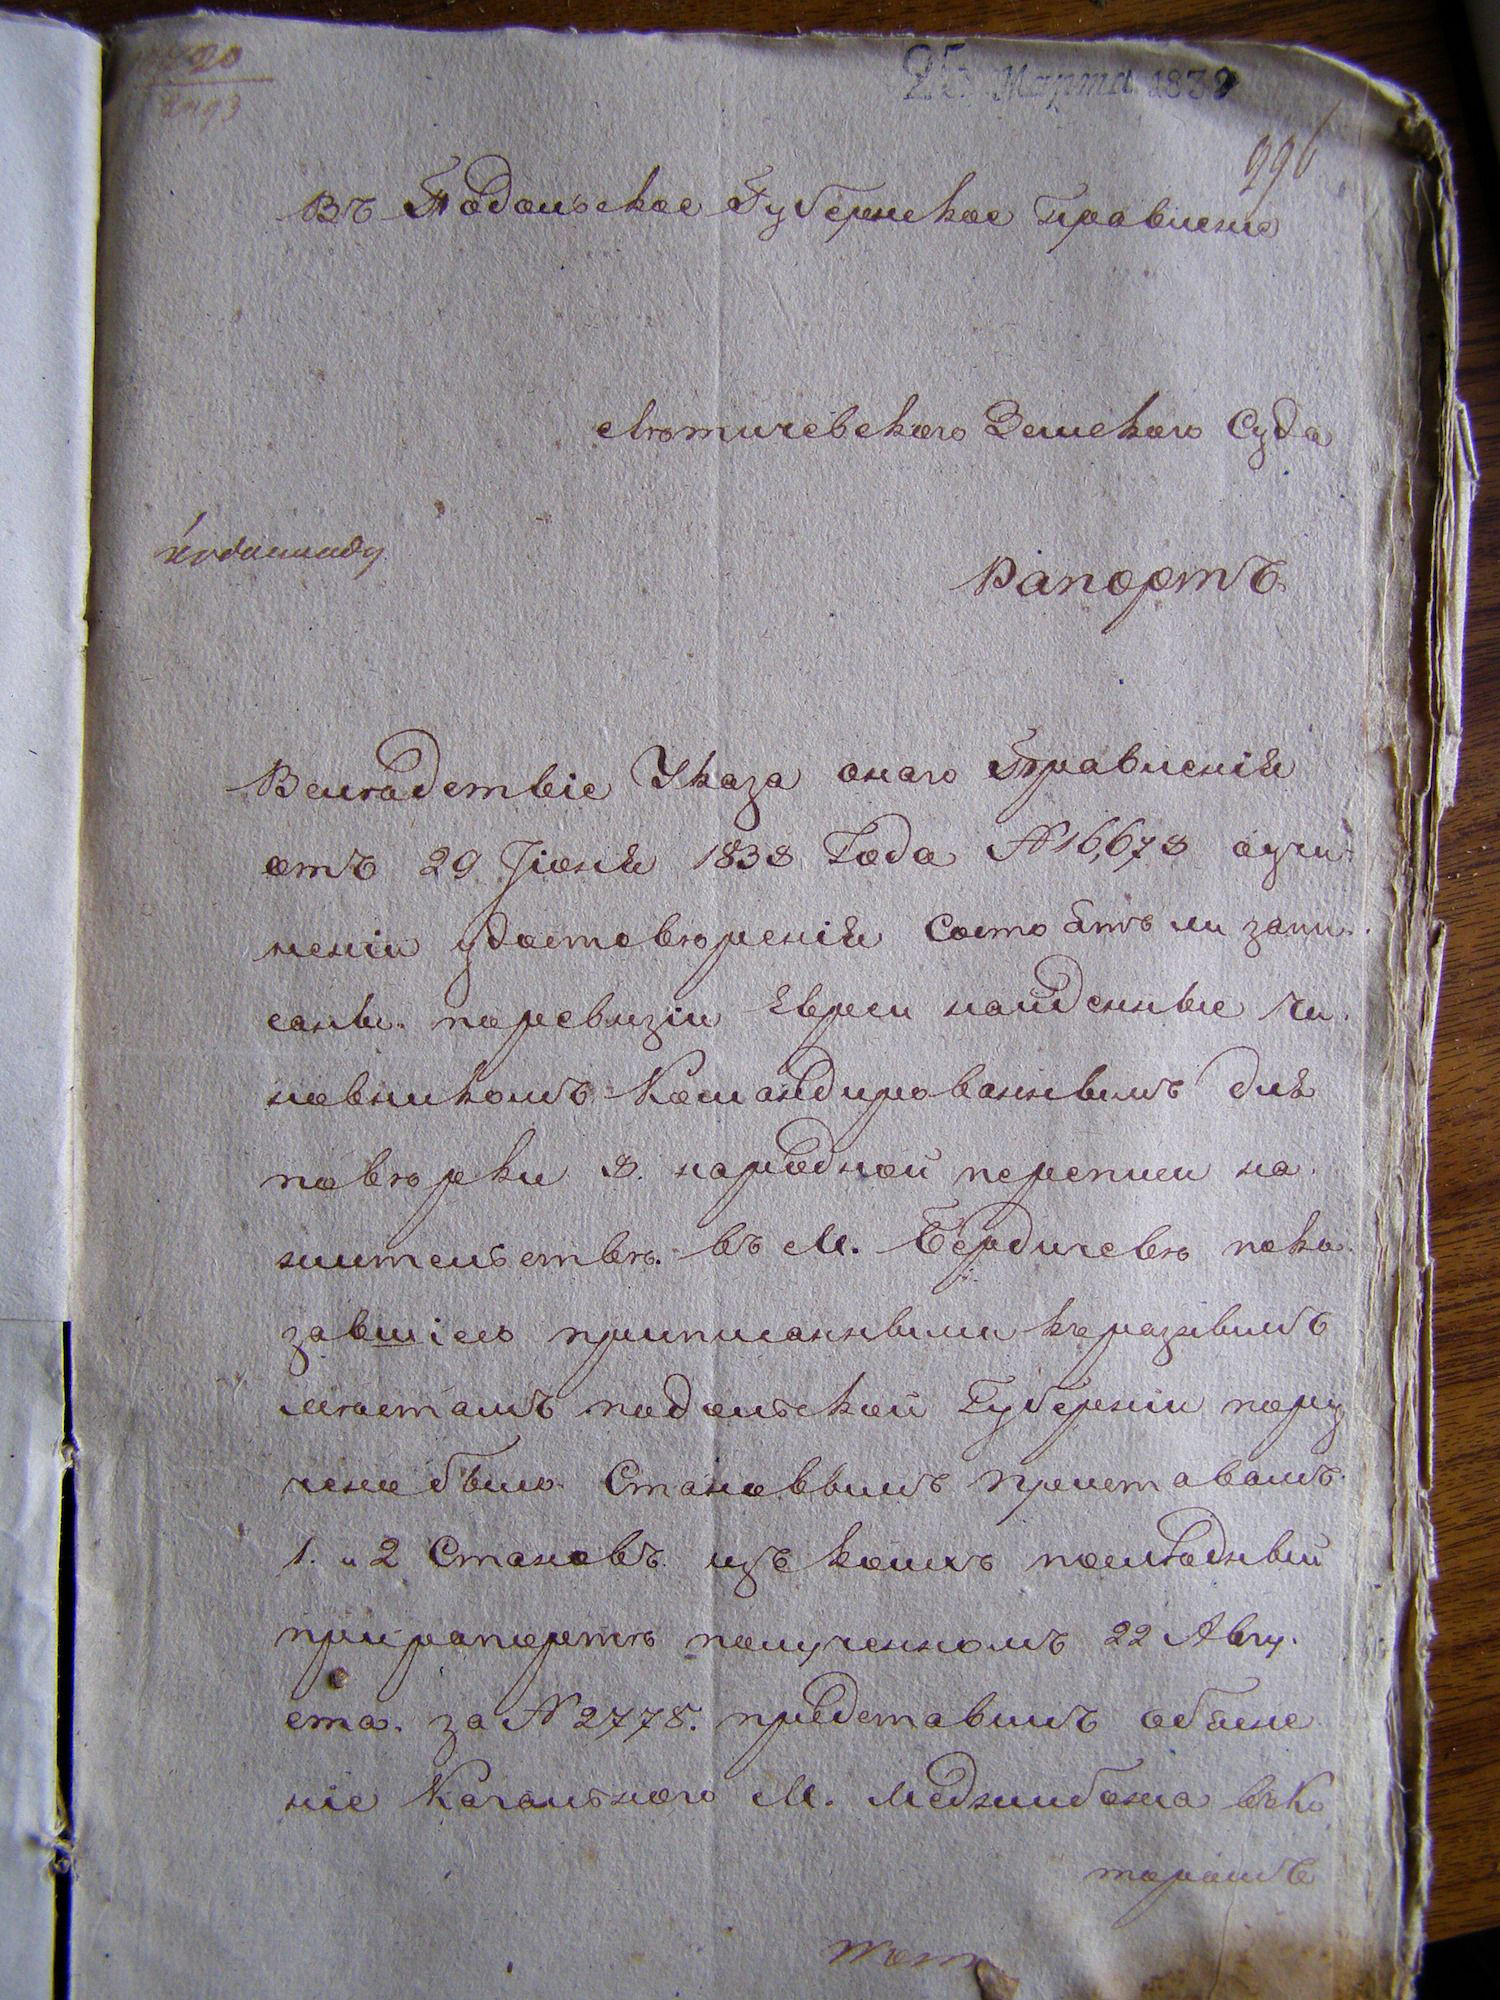 25 Марта 1839
226
Въ Подольское Губернское Правление
Лѣтичевскаго Земскаго Суда
Рапортъ
Вслѣдствіе Указа онаго Правленія
отъ 29 Іюня 1838 Года № 16,678 оучи-
неніи удостовѣренія Состоятъ ли запи-
саны по ревизіи Евреи найденные чи-
новникомъ Командированнымъ для
повѣрки 8. народной переписи на
жительствѣ въ М. Бердичевѣ пока
завшіесь приписанными къ разнымъ
мѣстамъ подольской Губерніи пору
чено было Становымъ приставамъ
1. и 2 Становъ. изъ коихъ послѣдный
при рапортѣ полученномъ 22 Авгу-
ста. за № 2778. представилъ объясне
ніе Кагальнаго М. Меджибожа въ ко
торомъ